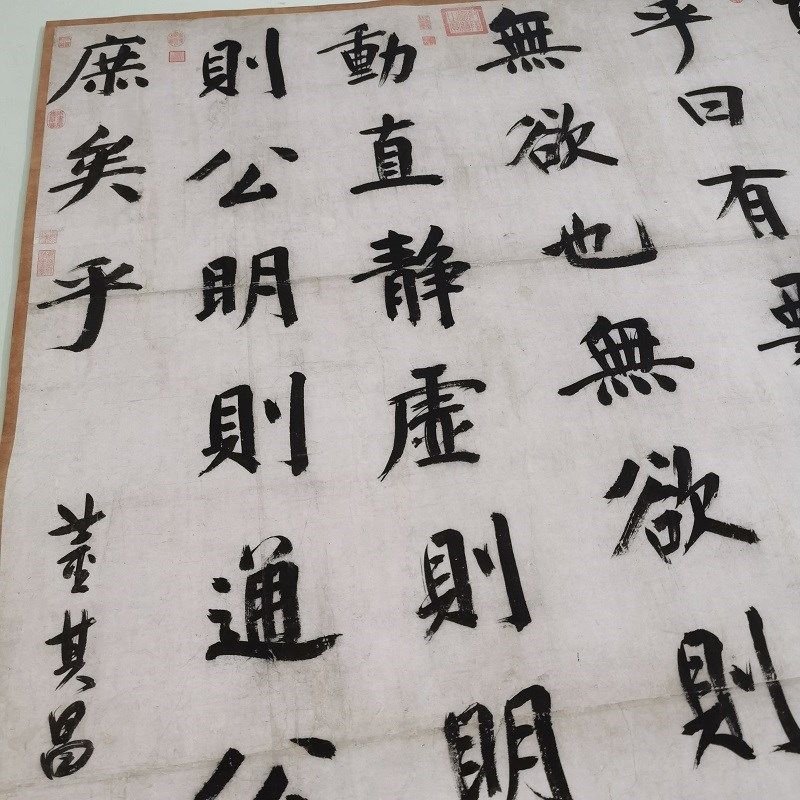 乎曰有
無欲也無欲則
動直靜虛則明
則公明則通公
庶矣乎
董其昌